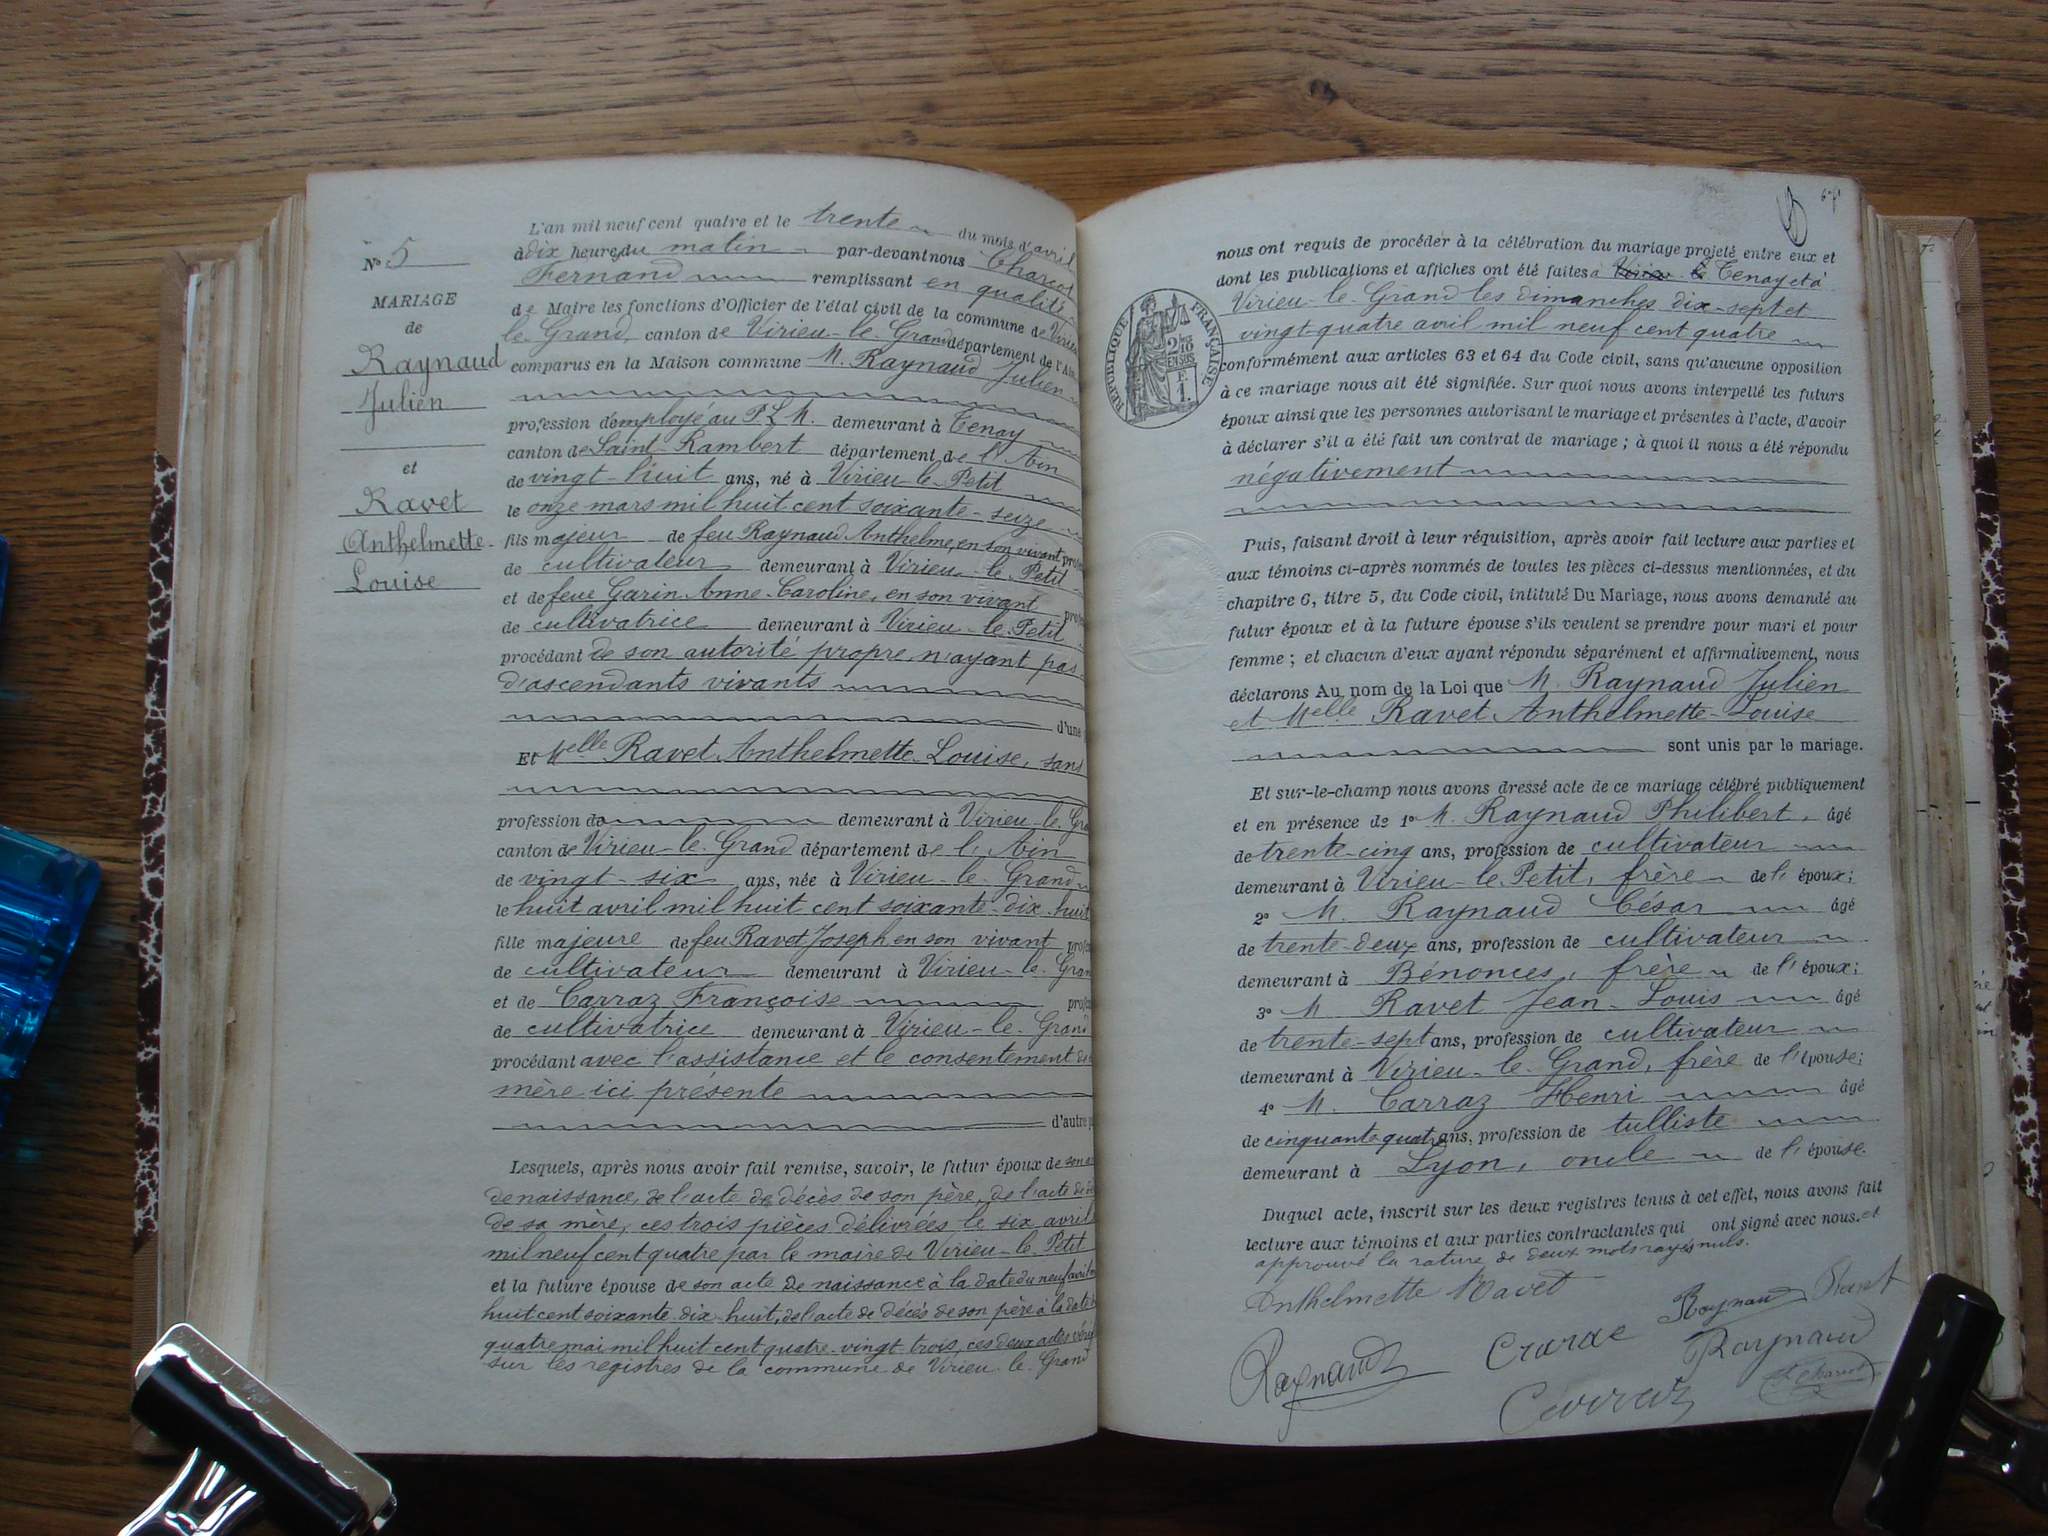 N° 5
MARIAGE
de
Raynaud
Julien
et
Ravet
Anthelmette-
Louise
L'an mil neuf cent quatre et le trente du mois d'avril
à dix heures du matin par-devant nous Charcot
Fernand remplissant en qualité
de Maire les fonctions d'Officier de l'état civil de la commune de Virieu
le-Grand, canton de Virieu-le-Grand département de l'Ain
comparus en la Maison commune M. Raynaud Julien
profession d'employé au P.L.M. demeurant à Tenay
canton de Saint-Rambert département de l'Ain
de vingt-huit ans, né à Virieu-le-Petit
le onze mars mil huit cent soixante-seize
fils majeur de feu Raynaud Anthelme, en son vivant profes
de cultivateur demeurant à Virieu-le-Petit
et de feue Garin Anne-Caroline, en son vivant profes
de cultivatrice demeurant à Virieu-le-Petit
procédant de son autorité propre, n'ayant pas
d'ascendants vivants
d'une
Et Melle Ravet Anthelmette-Louise, sans
profession de demeurant à Virieu-le-Gra
canton de Virieu-le-Grand département de l'Ain
de vingt-six ans, née à Virieu-le-Grand
le huit avril mil huit cent soixante-dix-huit
fille majeure de feu Ravet Joseph en son vivant profes
de cultivateur demeurant à Virieu-le-Gran
et de Carraz Françoise profes
de cultivatrice demeurant à Virieu-le-Grand
procédant avec l'assistance et le consentement de
mère ici présente
d'autre p
Lesquels, après nous avoir fait remise, savoir, le futur époux de son ac
de naissance, de l'acte de décès de son père, de l'acte de dé
de sa mère, ces trois pièces délivrées le six avril
mil neuf cent quatre par le maire de Virieu-le-Petit
et la future épouse de son acte de naissance à la date du neuf avril mil
huit cent soixante-dix-huit, de l'acte de décès de son père à la date d
quatre mai mil huit cent quatre-vingt-trois, ces deux actes véri
sur les registres de la commune de Virieu-le-Grand
67
nous ont requis de procéder à la célébration du mariage projeté entre eux et
dont les publications et affiches ont été faites à Virieu-le Tenay et à
Virieu-le-Grand les dimanches dix-sept et
vingt-quatre avril mil neuf cent quatre
RÉPUBLIQUE FRANÇAISE
2/10
EN SUS
F.
1.
conformément aux articles 63 et 64 du Code civil, sans qu'aucune opposition
à ce mariage nous ait été signifiée. Sur quoi nous avons interpellé les futurs
époux ainsi que les personnes autorisant le mariage et présentes à l'acte, d'avoir
à déclarer s'il a été fait un contrat de mariage ; à quoi il nous a été répondu
négativement
Puis, faisant droit à leur réquisition, après avoir fait lecture aux parties et
aux témoins ci-après nommés de toutes les pièces ci-dessus mentionnées, et du
chapitre 6, titre 5, du Code civil, intitulé Du Mariage, nous avons demandé au
futur époux et à la future épouse s'ils veulent se prendre pour mari et pour
femme ; et chacun d'eux ayant répondu séparément et affirmativement, nous
déclarons Au nom de la Loi que M. Raynaud Julien
et Melle Ravet Anthelmette-Louise
sont unis par le mariage.
Et sur-le-champ nous avons dressé acte de ce mariage célébré publiquement
et en présence de 1° M. Raynaud Philibert, âgé
de trente-cinq ans, profession de cultivateur
demeurant à Virieu-le-Petit, frère de l'époux;
2° M. Raynaud César âgé
de trente-deux ans, profession de cultivateur
demeurant à Bénonces, frère de l'époux;
3° M Ravet Jean-Louis âgé
de trente-sept ans, profession de cultivateur
demeurant à Virieu-le-Grand, frère de l'épouse;
4° M. Carraz Henri âgé
de cinquante quatre ans, profession de tulliste
demeurant à Lyon, oncle de l'épouse.
Duquel acte, inscrit sur les deux registres tenus à cet effet, nous avons fait
lecture aux témoins et aux parties contractantes qui ont signé avec nous. et
approuvé la rature de deux mots rayés nuls.
Anthelmette Ravet
Raynaud Ravet
Raynaud
Raynaud
Carraz
F. Charcot